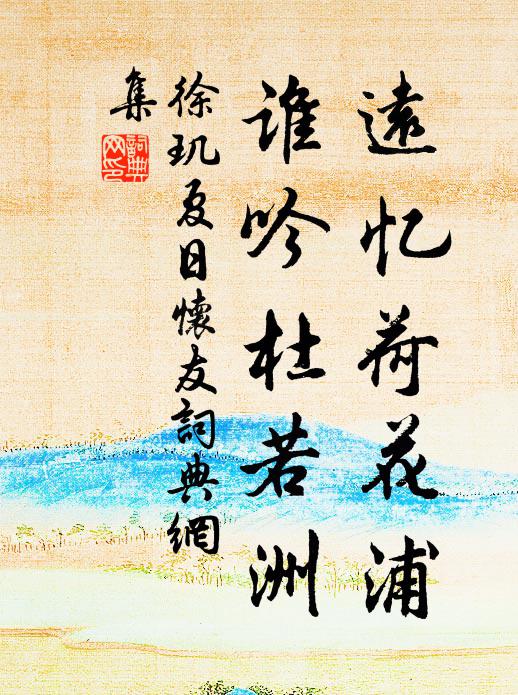 遠忆荷花浦
谁吟杜若洲
徐玑夏日懷友詞典網
集
詞典
网印